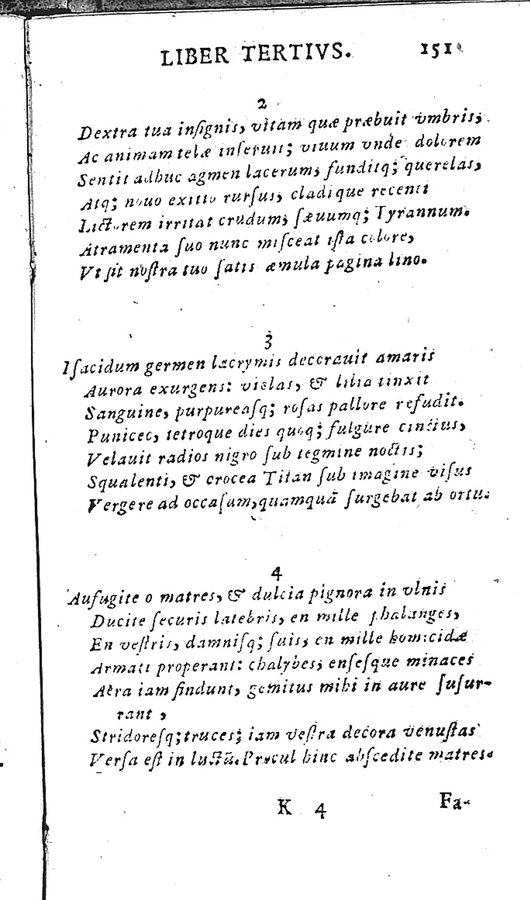 LIBER TERTIVS. 151
2
Dextra tua inſignis, vitam quæ præbuit vmbris;
Ac animam telæ inſeruit; viuum vnde dolorem
Sentit adhuc agmen lacerum, funditq; querelas,
Atq; nouo exitio rurſus, cladique recenti
Lictorem irritat crudum, ſæuumq; Tyrannum.
Atramenta ſuo nunc miſceat iſta colore,
Vt ſit noſtra tuo ſatis æmula pagina lino.
3
Iſacidum germen lacrymis decorauit amaris
Aurora exurgens: violas, & lilia tinxit
Sanguine, purpureaſq; roſas pallore refudit.
Puniceo, tetroque dies quoq; fulgure cinctus,
Velauit radios nigro ſub tegmine noctis;
Squalenti, & crocea Titan ſub imagine viſus
Vergere ad occaſum, quamquã ſurgebat ab ortu.
4
Aufugite o matres, & dulcia pignora in vlnis
Ducite ſecuris latebris, en mille phalanges,
En veſtris, damniſq; ſuis, en mille homicidæ
Armati properant: chalybes; enſeſque minaces
Aëra iam findunt, gemitus mihi in aure ſuſur-
rant,
Stridoreſq; truces; iam veſtra decora venuſtas
Verſa eſt in luctũ. Procul hinc abſcedite matres.
K 4 Fa-